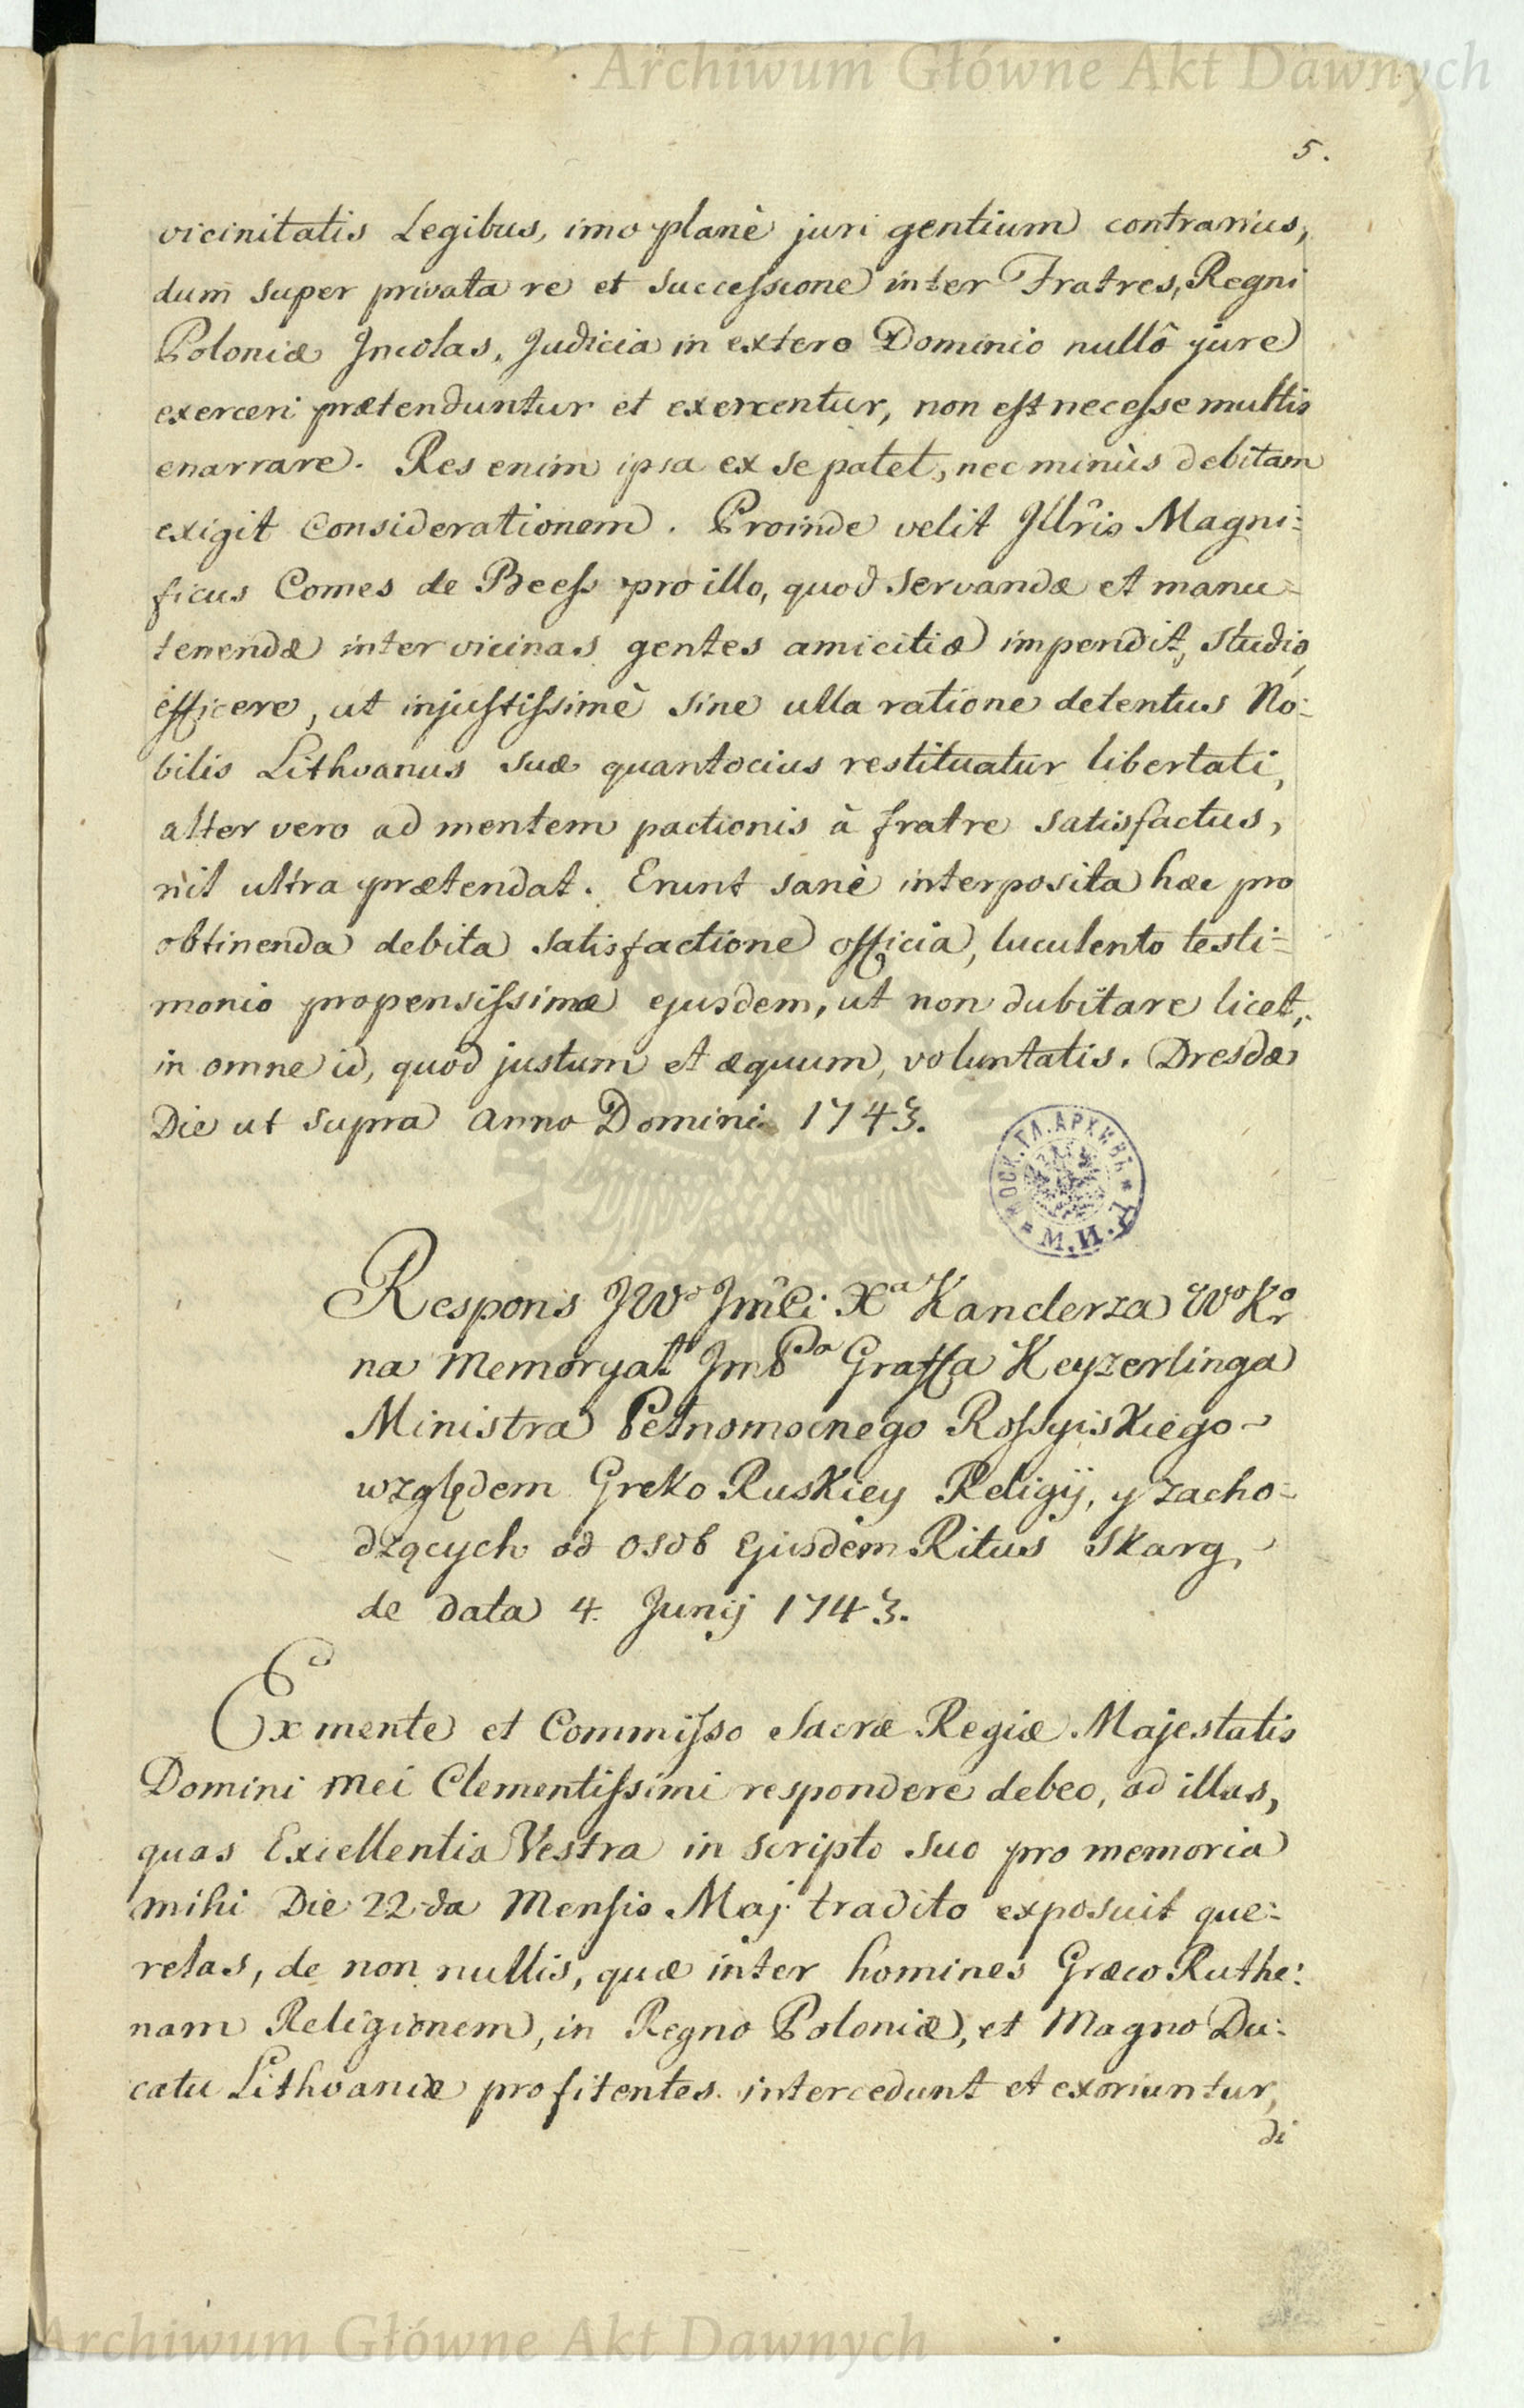 Archiwum Główne Akt Dawnych
5.
vicinitatis Legibus, imo planè juri gentium contrarius,
dum super privata re et successione inter Fratres, Regni
Poloniæ Jncolas, Judicia in extero Dominio nullô jure
exerceri prætenduntur et exercentur, non est necesse multis
enarrare. Res enim ipsa ex se patet, nec minùs debitam
exigit Considerationem. Proinde velit Jllr̃is Magni:
ficus Comes de Beess pro illo, quod servandæ et manu=
tenendæ inter vicinas gentes amicitiæ impendit, studio,
efficere, ut injustissimè sine ulla ratione detentus No:
bilis Lithvanus suæ quantocius restituatur libertati,
alter vero ad mentem pactionis à fratre satisfactus,
nil ultra prætendat. Erunt sanè interposita hæc pro
obtinenda debita satisfactione officia, luculento testi=
monio propensissimæ ejusdem, ut non dubitare licet,
in omne id, quod justum et æquum, voluntatis. Dresdæ
Die ut supra Anno Domini 1743.
МОСК. ГЛ. АРХИВЪ
М. И. Д.
Respons JWo Jmc̃i Xa Kanclerza Wo Kor
na Memoryał Jm Pa Graffa Keyzerlinga
Ministra Pełnomocnego Rossyiskiego
względem Greko Ruskiey Religij, y zacho=
dzących od osob Ejusdem Ritus skarg,
de data 4. Junij 1743.
Ex mente et Commisso Sacræ Regiæ Majestatis
Domini mei Clementissimi respondere debeo, ad illas,
quas Excellentia Vestra in scripto suo pro memoria
mihi Die 22da Mensis Maj. tradito exposuit que:
relas, de non nullis, quæ inter homines Græco Ruthe:
nam Religionem, in Regno Poloniæ, et Magno Du:
catu Lithvaniæ profitentes intercedunt et exoriuntur,
di
Archiwum Główne Akt Dawnych